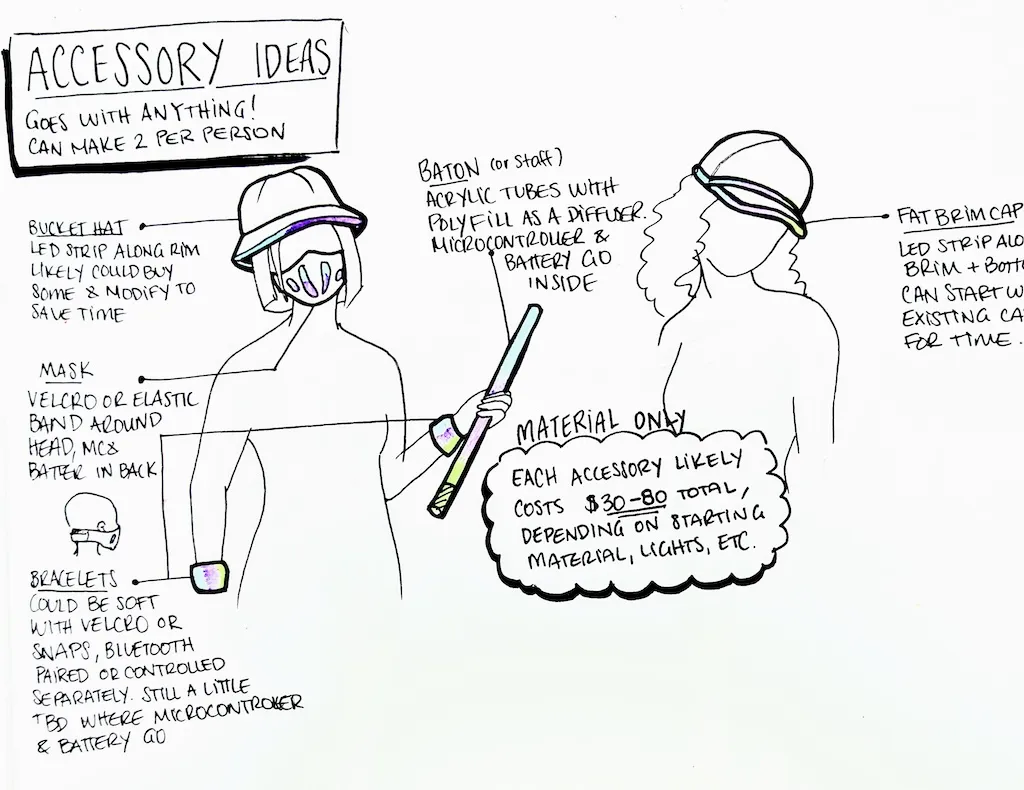 ACCESSORY IDEAS
GOES WITH ANYTHING!
CAN MAKE 2 PER PERSON
BUCKET HAT
LED STRIP ALONG RIM
LIKELY COULD BUY
SOME & MODIFY TO
SAVE TIME
MASK
VELCRO OR ELASTIC
BAND AROUND
HEAD, MC&
BATTER IN BACK
BRACELETS
COULD BE SOFT
WITH VELCRO OR
SNAPS, BLUETOOTH
PAIRED OR CONTROLLED
SEPARATELY. STILL A LITTLE
TBD WHERE MICROCONTROLLER
& BATTERY GO
BATON (or Staff)
ACRYLIC TUBES WITH
POLYFILL AS A DIFFUSER.
MICROCONTROLLER &
BATTERY GO
INSIDE
MATERIAL ONLY
EACH ACCESSORY LIKELY
COSTS $30-80 TOTAL,
DEPENDING ON STARTING
MATERIAL, LIGHTS, ETC.
FAT BRIM CAP
LED STRIP ALO
BRIM + BOTTO
CAN START W
EXISTING CA
FOR TIME.